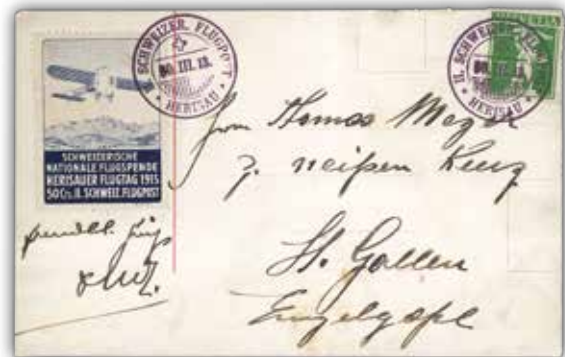 II. SCHWEIZER. FLUGPOST
30.III.13.
HERISAU
II. SCHWEIZER. FLUGPOST
30.III.13.
HERISAU
HELVETIA
SCHWEIZERISCHE
NATIONALE FLUGSPENDE
HERISAUER FLUGTAG 1913
50 Cts. II. SCHWEIZ. FLUGPOST
Herrn Thomas
z. weißen Kreuz
St. Gallen
Engelgasse